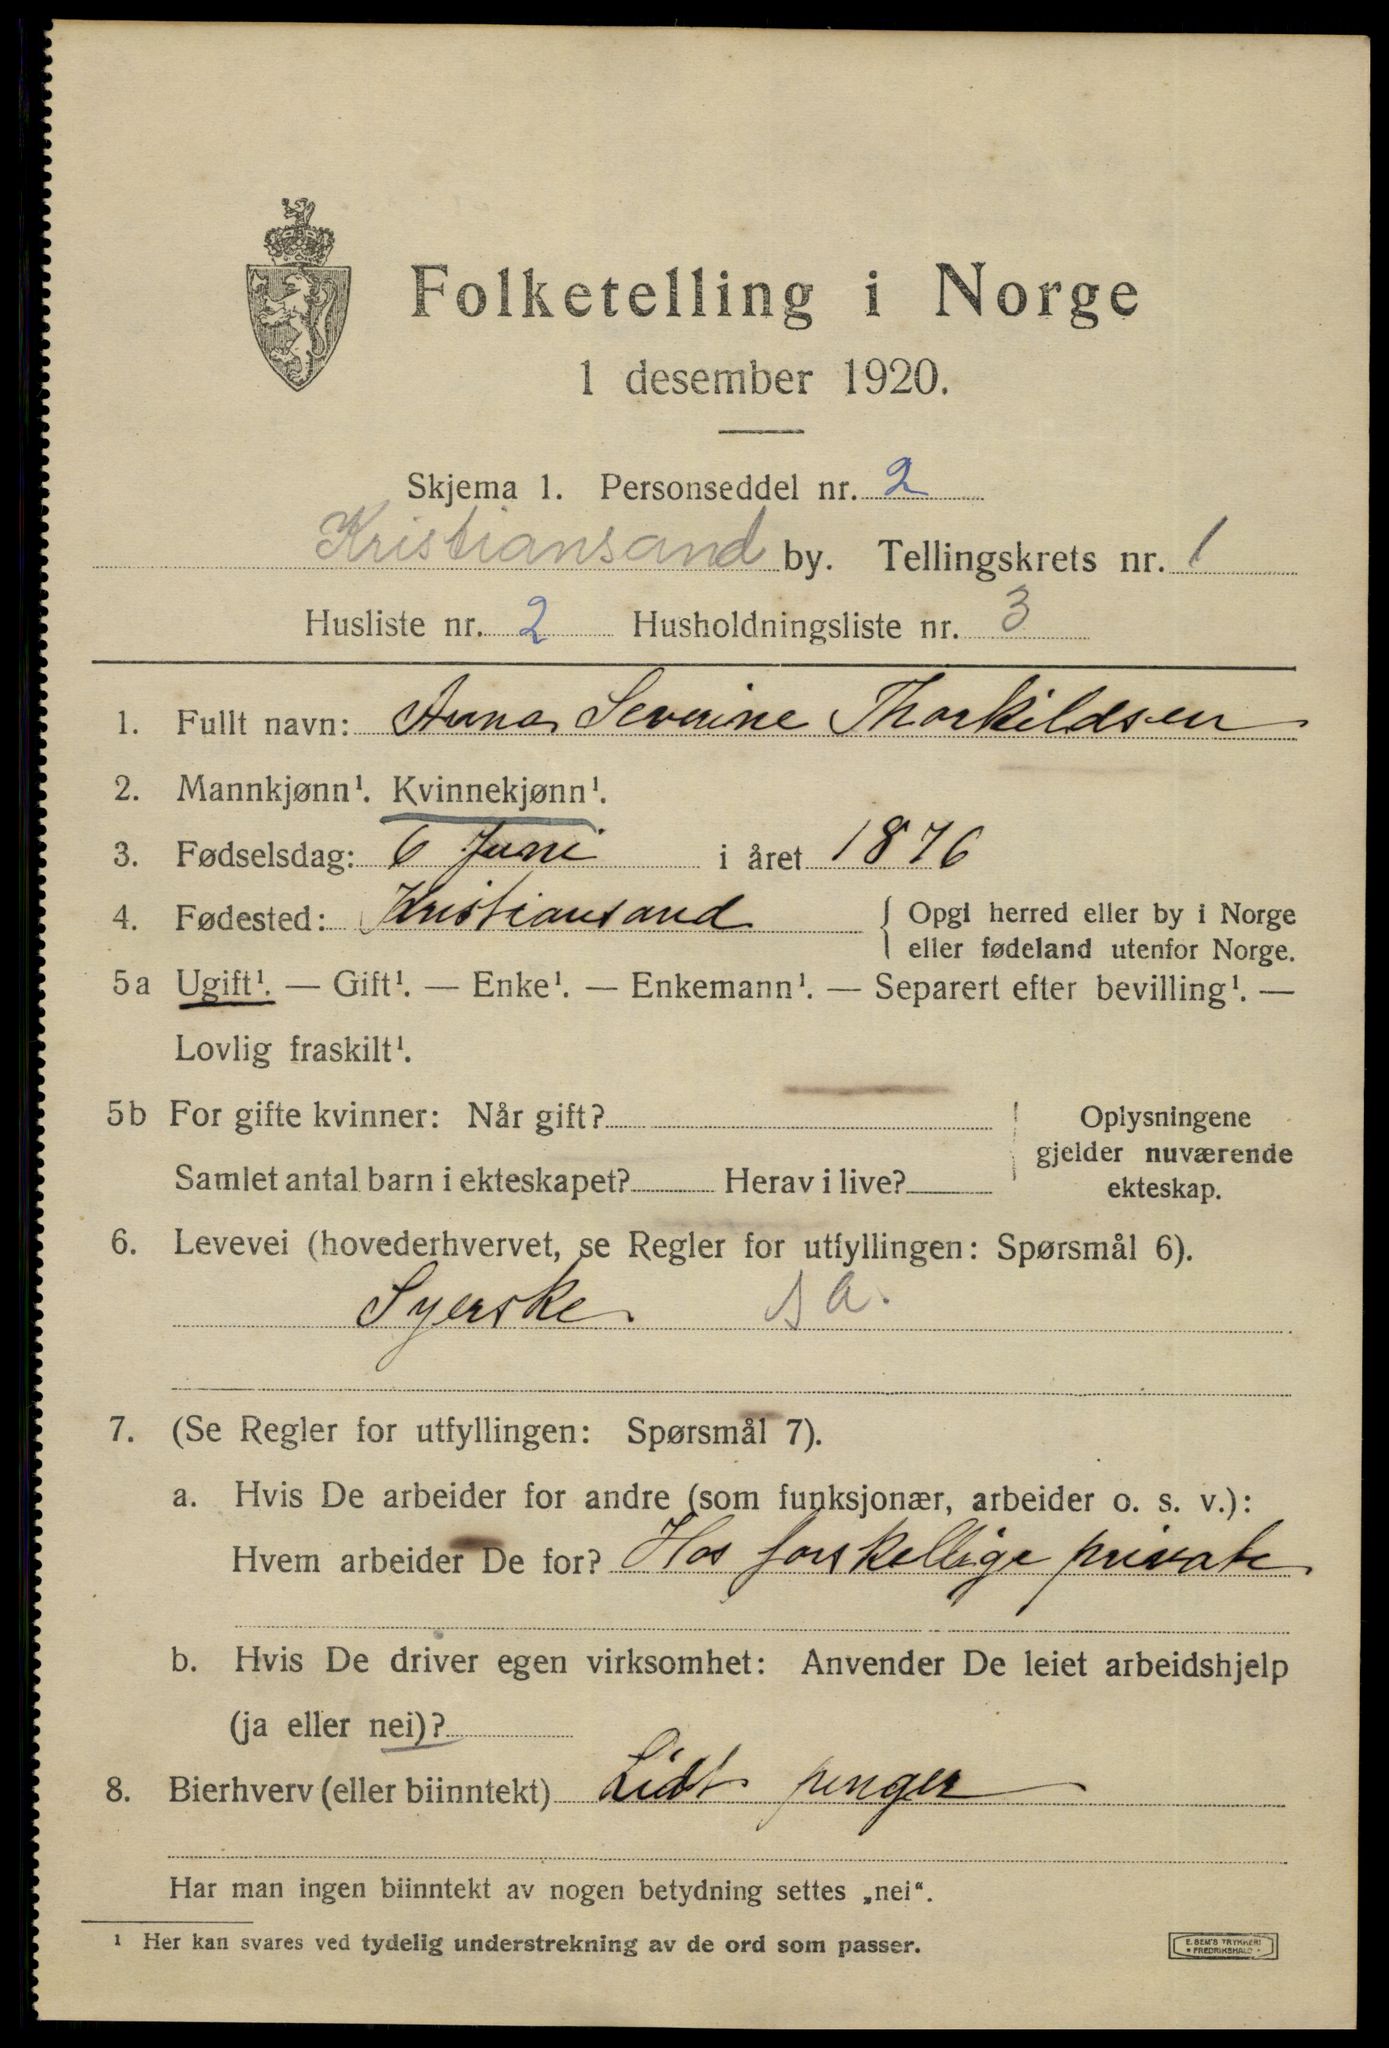 Folketelling i Norge
1 desember 1920.
Skjema 1. Personseddel nr. 2
Kristiansand by. Tellingskrets nr. 1
Husliste nr. 2 Husholdningsliste nr. 3
1. Fullt navn: Anna Severine Thorkildsen
2. Mannkjønn¹. Kvinnekjønn¹.
3. Fødselsdag: 6 Juni i året 1876
4. Fødested: Kristiansand { Opgi herred eller by i Norge
eller fødeland utenfor Norge.
5a Ugift¹. — Gift¹. — Enke¹. — Enkemann¹. — Separert efter bevilling¹. —
Lovlig fraskilt¹.
5b For gifte kvinner: Når gift? Oplysningene
gjelder nuværende
Samlet antal barn i ekteskapet? Herav i live? ekteskap.
6. Levevei (hovederhvervet, se Regler for utfyllingen: Spørsmål 6).
Syerske
7. (Se Regler for utfyllingen: Spørsmål 7).
a. Hvis De arbeider for andre (som funksjonær, arbeider o. s. v.):
Hvem arbeider De for? Hos forskellige private
b. Hvis De driver egen virksomhet: Anvender De leiet arbeidshjelp
(ja eller nei)?
8. Bierhverv (eller biinntekt) Lidt penger
Har man ingen biinntekt av nogen betydning settes „nei“.
¹ Her kan svares ved tydelig understrekning av de ord som passer.
E. SEM'S TRYKKERI
* FREDRIKSHALD *